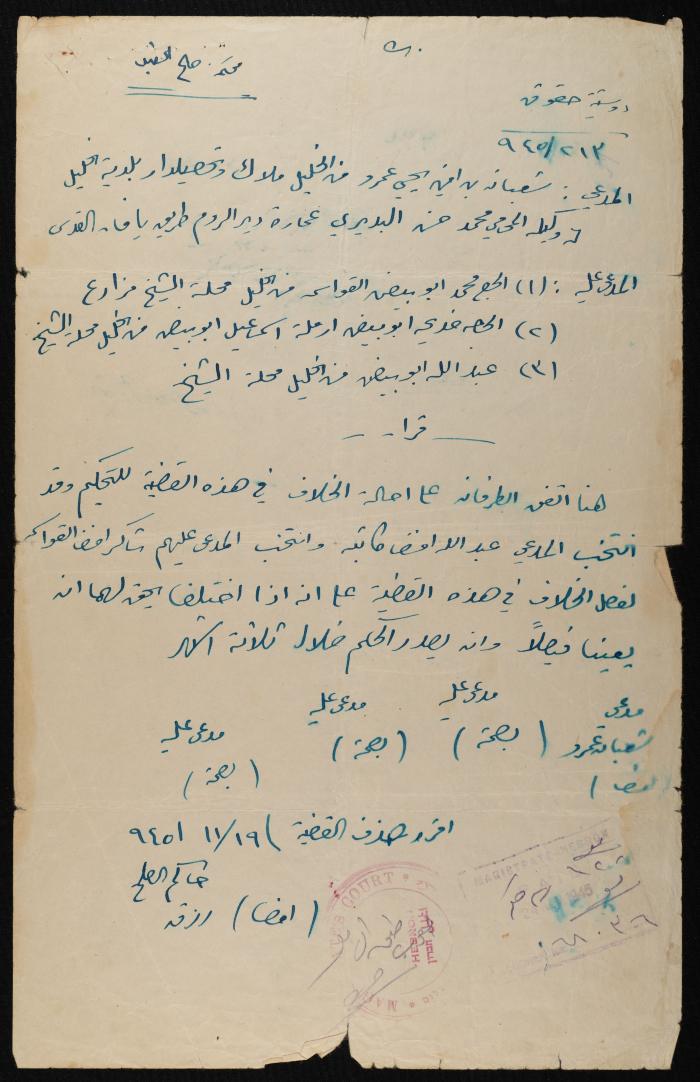 محكمة صلح الخليل
دوسية حقوق
٩٤٥/٢١٣
المدعي : شعبان بن امين يحيى عمرو من الخليل ملاك وتحصيلدار بلدية الخليل
وكيله المحامي محمد حسن البديري عمارة دير الروم طريق يافا القدس
المدعى عليه : (١) الحج محمد ابو بيض القواسمه من الخليل محلة الشيخ مزارع
(٢) الحجه خديجه ابو بيض ارملة اسماعيل ابو بيض من الخليل محلة الشيخ
(٣) عبد الله ابو بيض من الخليل محلة الشيخ
قرار
هنا اتفق الطرفان على احالة الخلاف في هذه القضية للتحكيم وقد
انتخب المدعي عبد الله افندي وانتخب المدعى عليهم شاكر افندي القواسمه
لفصل الخلاف في هذه القضية على انه اذا اختلفا يحق لهما ان
يعينا فيصلاً وان يصدر الحكم خلال ثلاثة اشهر
مدعي مدعى عليه مدعى عليه مدعى عليه
شعبان عمرو (بصمة) (بصمة) (بصمة)
(امضا)
اقرر حذف القضية ١٩/١١/٩٤٥
حاكم الصلح
(امضا) رزق
MAGISTRATE HEBRON
1945
COURT
HEBRON